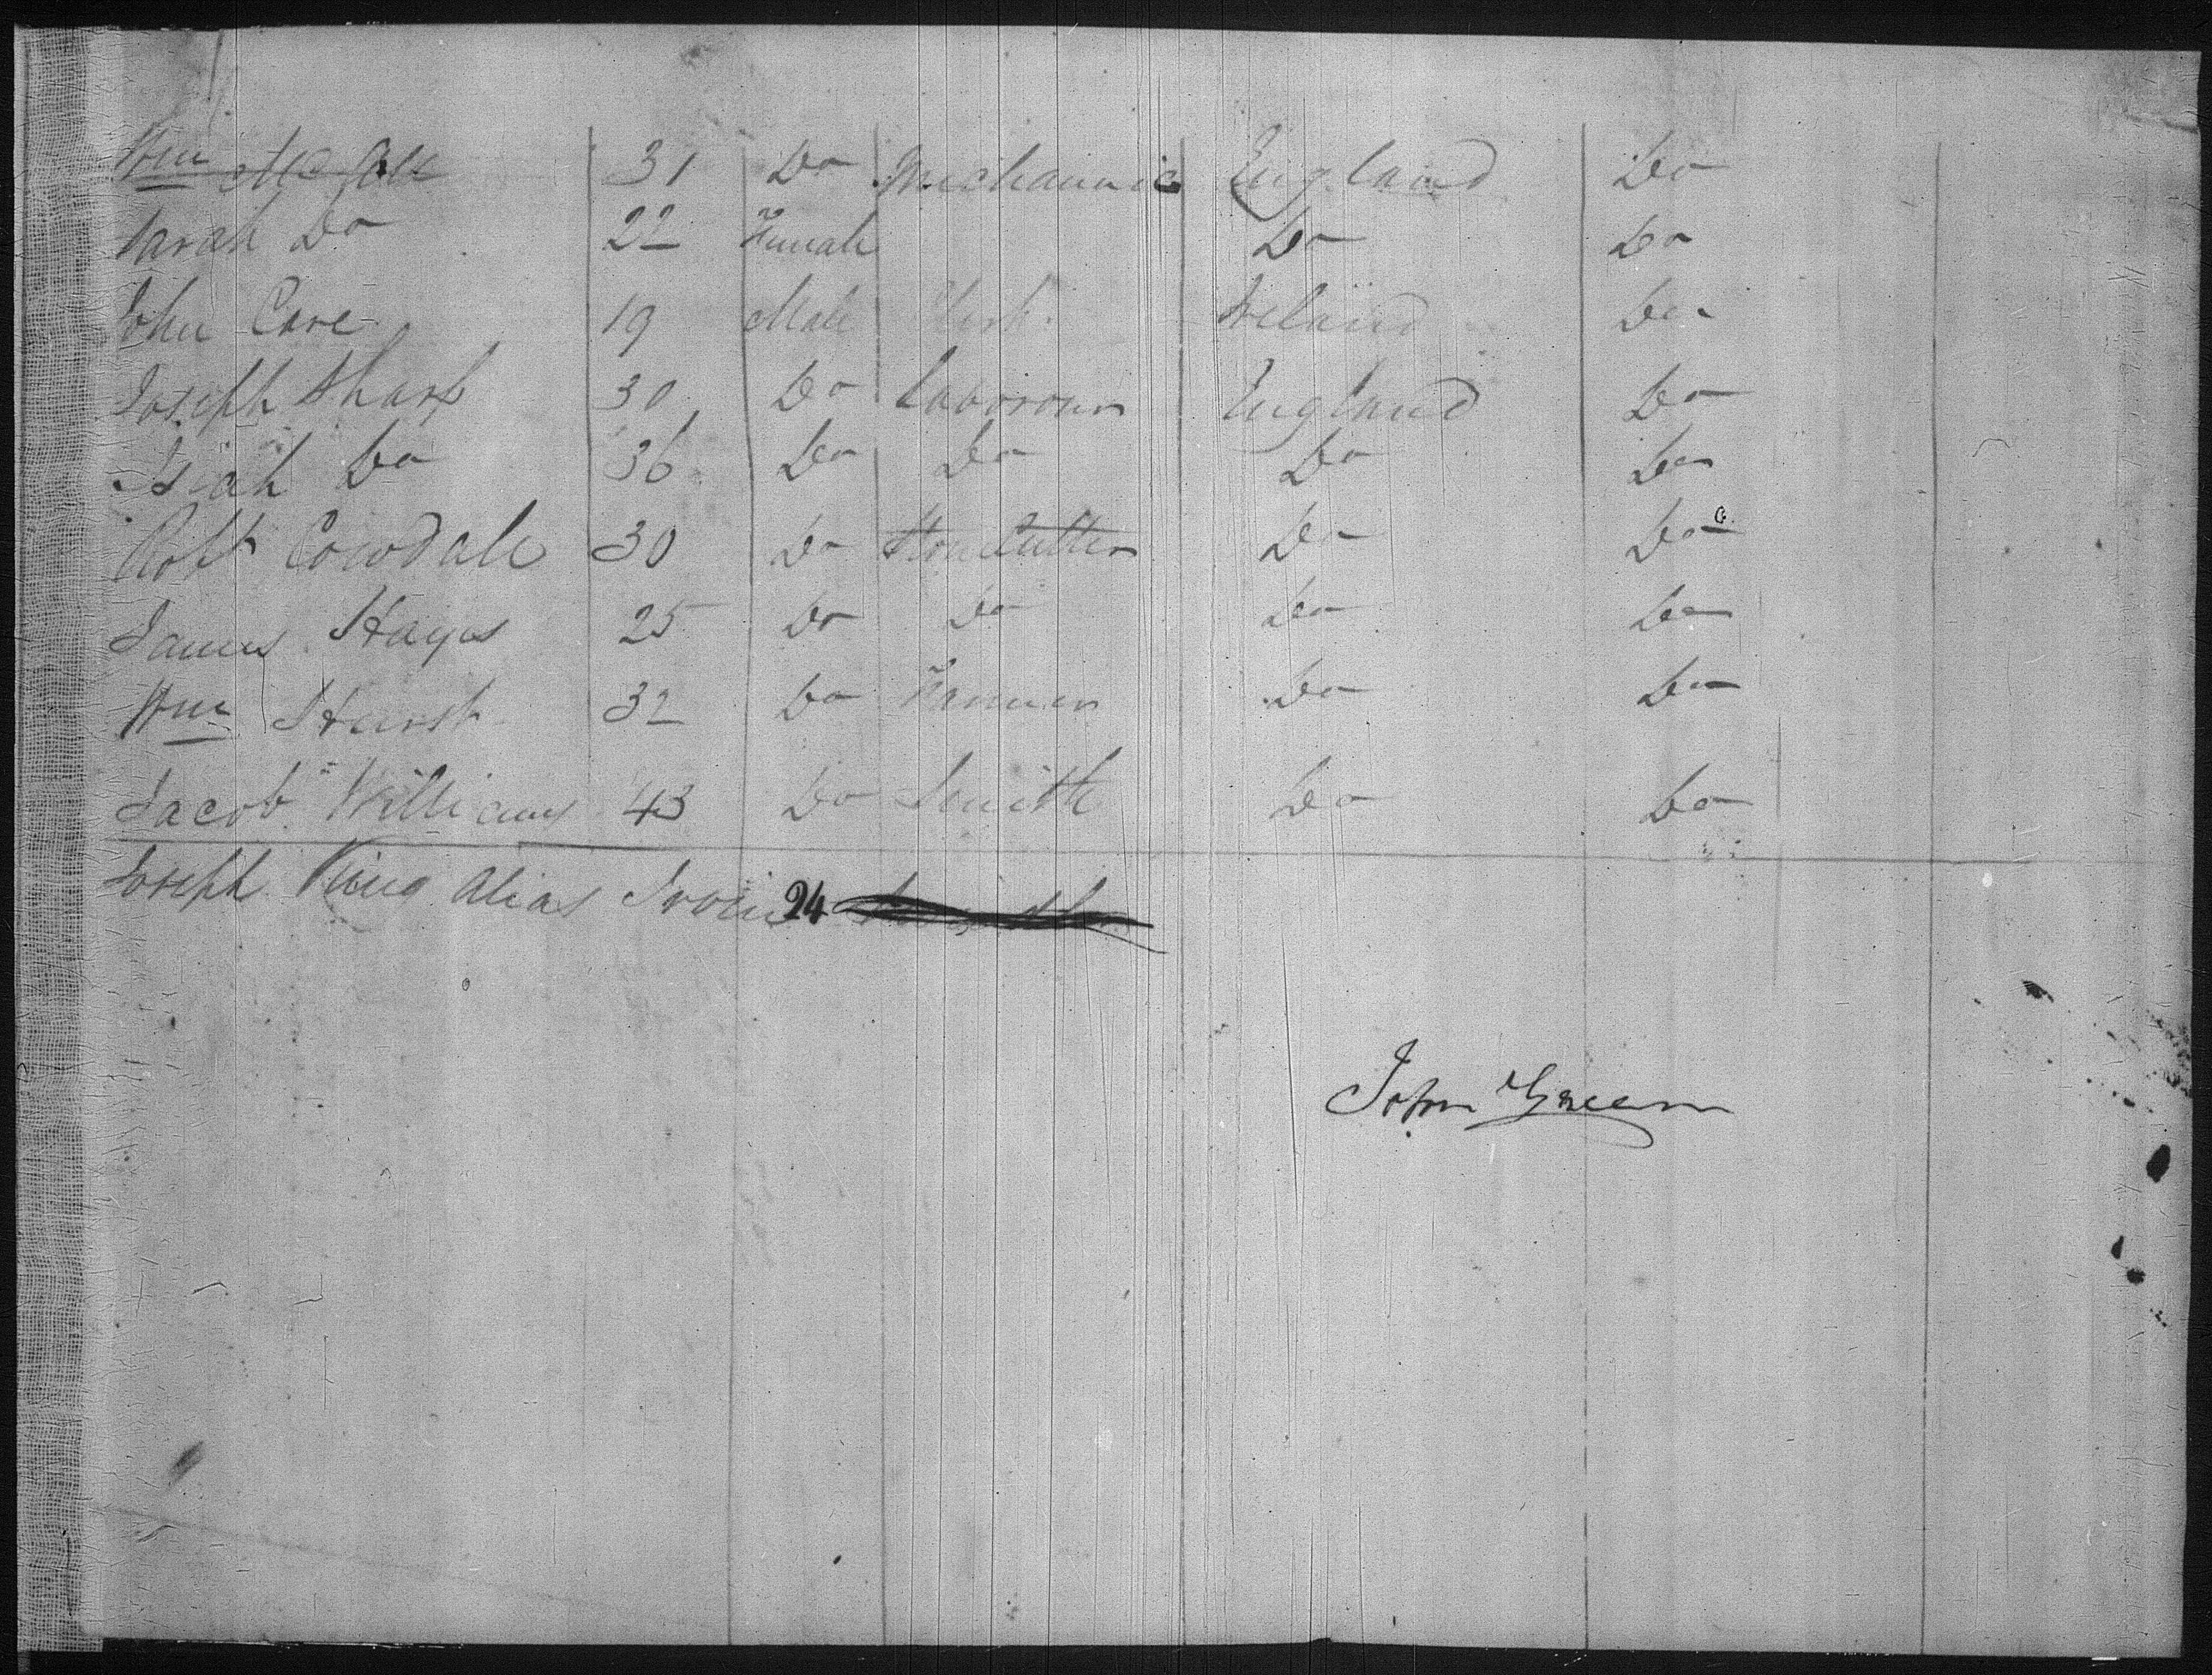 Wm 31 Do Mechannic England Do
Sarah Do 22 Female Do Do
John Care 19 Male Clerk Ireland Do
Joseph Sharp 30 Do Labourour England Do
Isiah Do 36 Do Do Do Do
Robt Cowdale 30 Do Stonecutter Do Do
James Hays 25 Do Do Do Do
Wm Hurst 32 Do Farmer Do Do
Jacob Williams 43 Do Smith Do Do
Joseph King alias 24
John Green